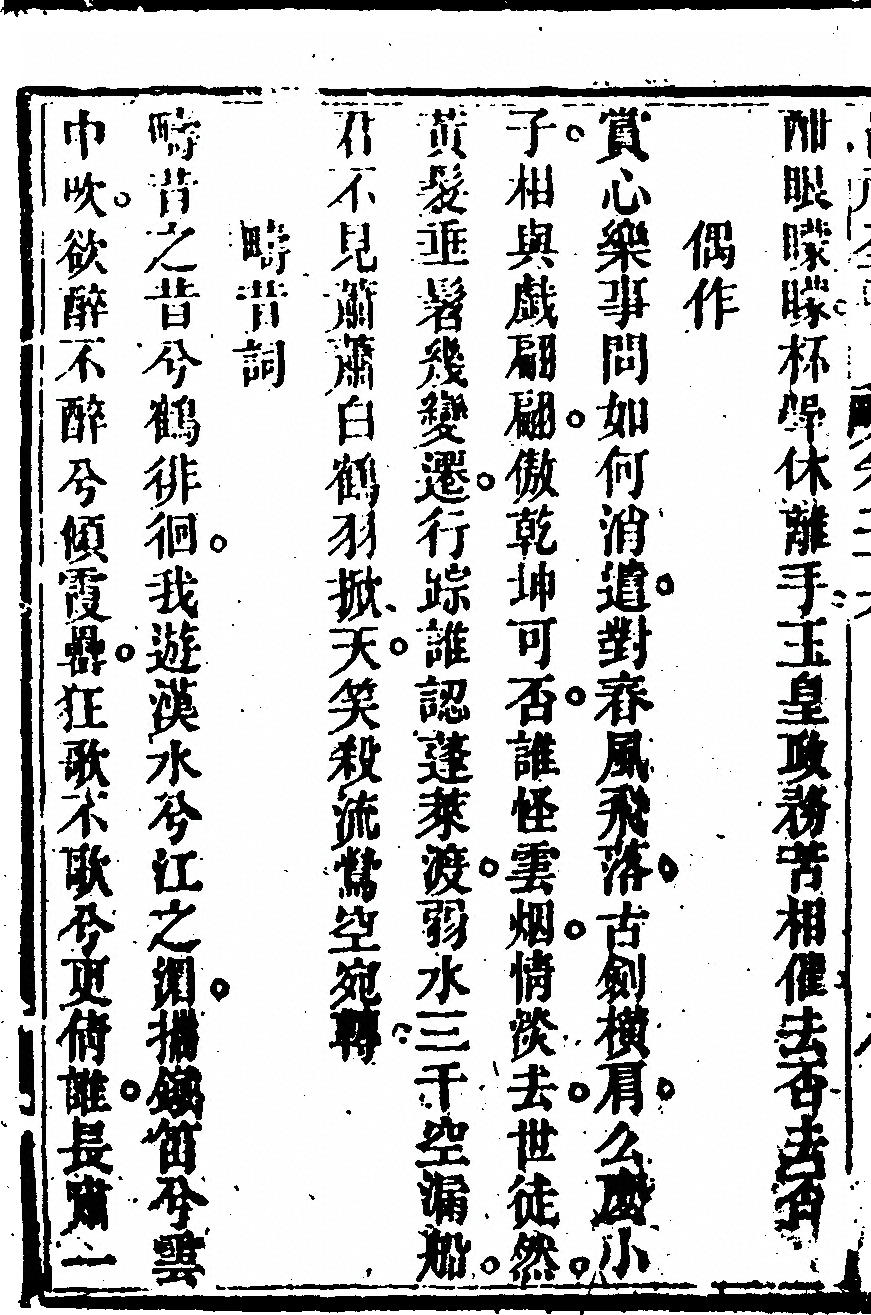 酣眼矇矇杯斝休離手玉皇政務苦相催去否去否
偶作
賞心樂事問如何消遣對春風飛落古劍橫肩么麼小
子相與戯翩翩傲乾坤可否誰怪雲烟情燚去世徒然
黃髮垂髫幾變遷行踪誰認蓬萊渡弱水三千空漏船
君不見蕭蕭白鶴羽掀天笑殺流鶯空宛轉
疇昔詞
疇昔之昔兮鶴徘徊我遊漢水兮江之湄携鐵笛兮雲
中吹欲醉不醉兮傾霞斝狂歌不歌兮更倚誰長嘯一